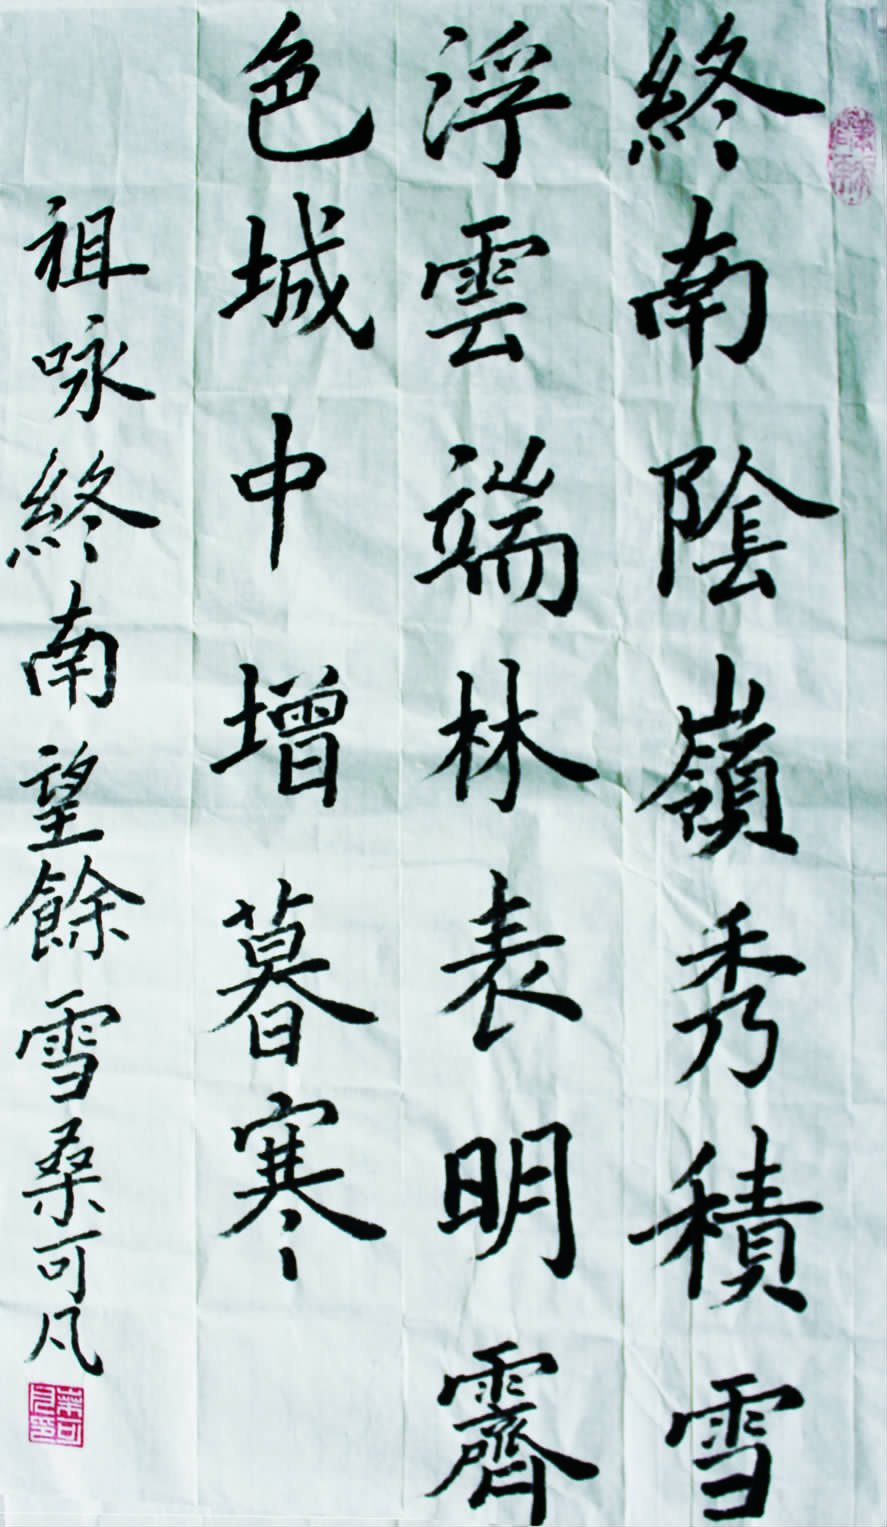 終南陰嶺秀積雪
浮雲端林表明霽
色城中增暮寒
祖咏終南望餘雪桑可凡